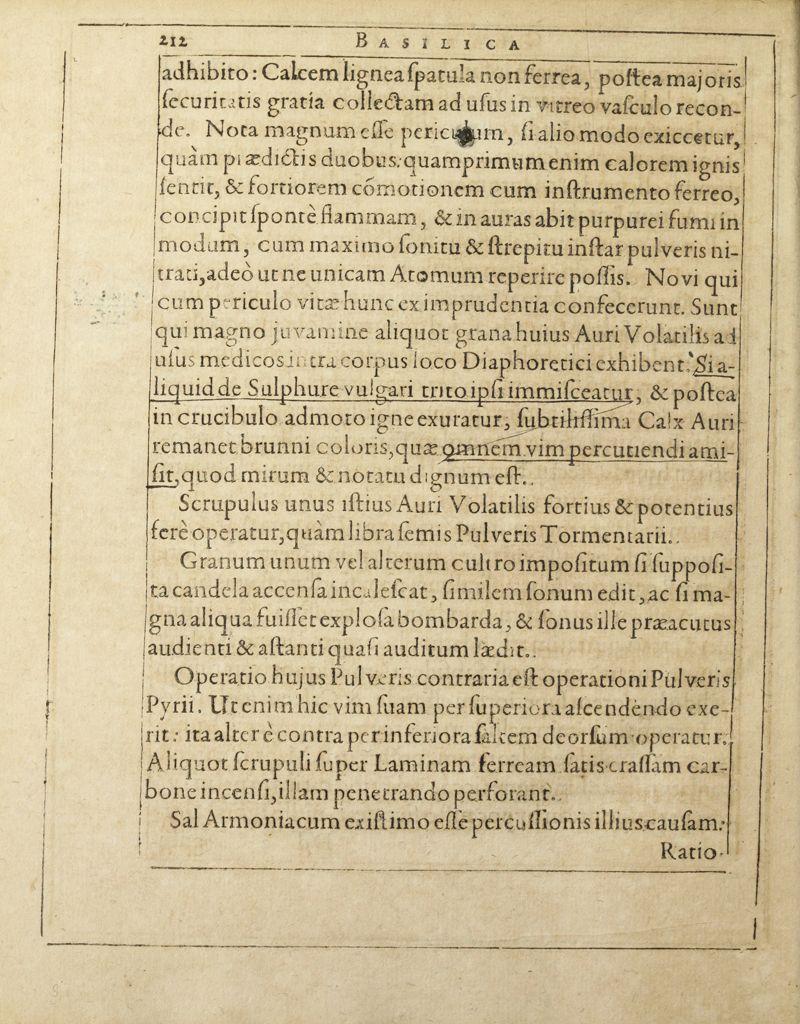 212 BASILICA
adhibito: Calcem lignea ſpatula non ferrea, poſtea majoris
ſecuritatis gratia collectam ad uſus in vitreo vaſculo recon-
de. Nota magnum eſſe periculum, ſi alio modo exiccetur,
quàm prædictis duobus: quamprimum enim calorem ignis
ſentit, & fortiorem cómotionem cum inſtrumento ferreo,
concipit ſpontè flammam, & in auras abit purpurei fumi in
modum, cum maximo ſonitu & ſtrepitu inſtar pulveris ni-
trati, adeò ut ne unicam Atomum reperire poſſis. Novi qui
cum periculo vitæ hunc ex imprudentia confecerunt. Sunt
qui magno juvamine aliquot grana huius Auri Volatilis ad
uſus medicos intra corpus loco Diaphoretici exhibent. Si a-
liquid de Sulphure vulgari trito ipſi immiſceatur, & poſtea
in crucibulo admoto igne exuratur, ſubtiliſſima Calx Auri
remanet brunni coloris, quæ omnem vim percutiendi ami-
ſit, quod mirum & notatu dignum eſt.
Scrupulus unus iſtius Auri Volatilis fortius & potentius
ferè operatur, quàm libra ſemis Pulveris Tormentarii.
Granum unum vel alterum cultro impoſitum ſi ſuppoſi-
ta candela accenſa incaleſcat, ſimilem ſonum edit, ac ſi ma-
gna aliqua fuiſſet exploſa bombarda, & ſonus ille præacutus
audienti & aſtanti quaſi auditum lædit.
Operatio hujus Pulveris contraria eſt operationi Pulveris
Pyrii. Ut enim hic vim ſuam per ſuperiora aſcendèndo exe-
rit: ita alter è contra per inferiora ſaltem deorſum operatur.
Aliquot ſcrupuli ſuper Laminam ferream ſatis craſſam car-
bone incenſi, illam penetrando perforant.
Sal Armoniacum exiſtimo eſſe percuſſionis illius cauſam:
Ratio